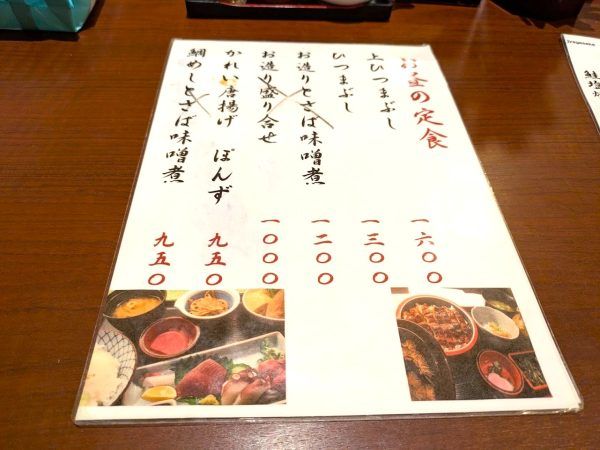 お昼の定食
上ひつまぶし 一六〇〇
ひつまぶし 一三〇〇
お造りとさば味噌煮 一二〇〇
お造り盛り合せ 一〇〇〇
かれい唐揚げ ぽんず 九五〇
鯛めしとさば味噌煮 九五〇